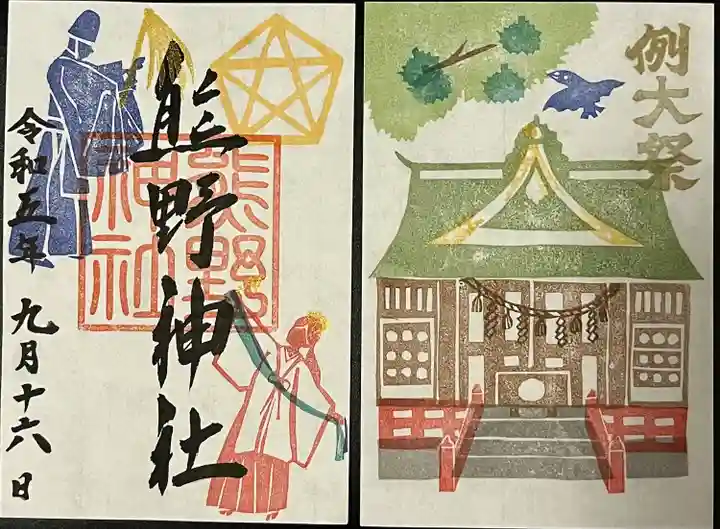 熊野神社
令和五年 九月十六日
熊野神社
例大祭